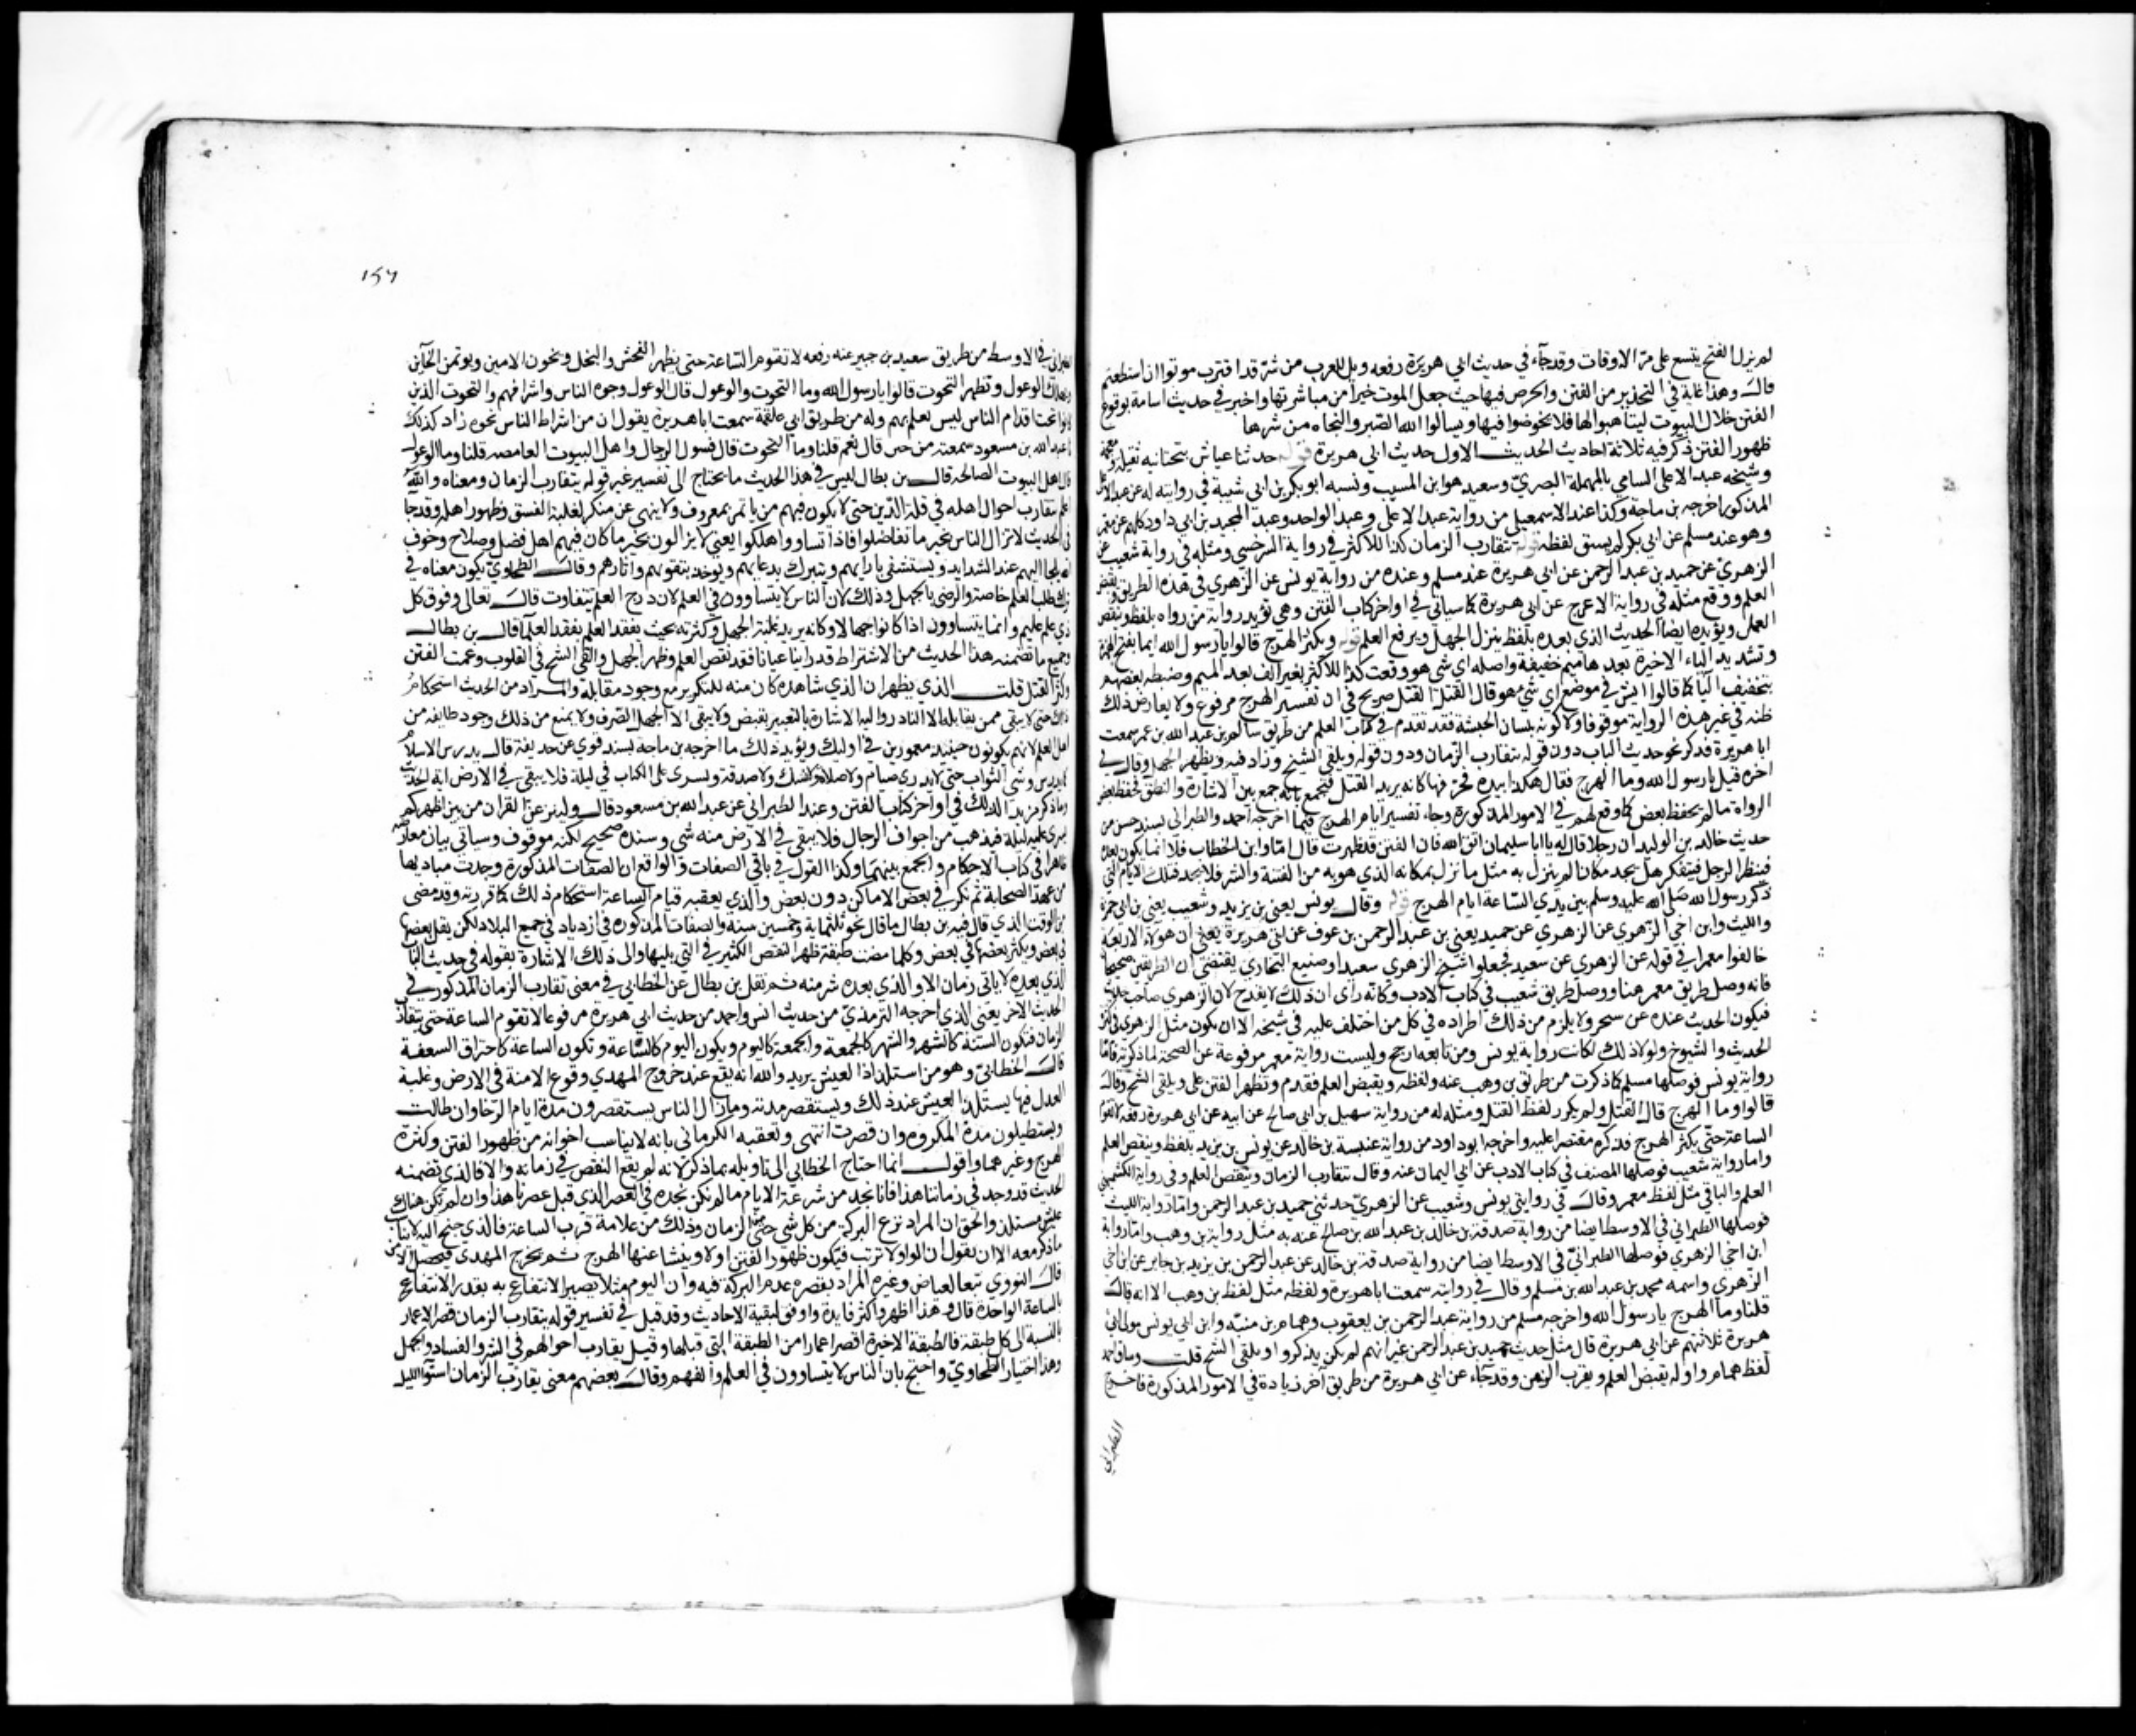 لم يزل الفتح يتسع على مرّ الاوقات وقد جآء في حديث ابي هريرة رفعه ويل للعرب من شرّ قد اقترب موتوا ان استطعتم
قال وهذا غاية في التحذير من الفتن والحرص فيها حيث جعل الموت خيرا من مباشرتها واخبر في حديث اسامة بوقوع
الفتن خلال البيوت ليتاهبوا لها فلا يخوضوا فيها ويسالوا الله الصبر والنجاه من شرها
ظهور الفتن ذكر فيه ثلاثة احاديث الحديث الاول حديث ابي هريرة قوله حدثنا عياش بتحتانيه ثقيله ومعجمة
وشيخه عبد الاعلى السامي بالمهملة البصري وسعيد هو ابن المسيب ونسبه ابو بكر بن ابي شيبة في روايته له عن عبد الاعلى
المذكور اخرجه بن ماجة وكذا عند الاسمعيلي من رواية عبد الاعلى وعبد الواحد وعبد المجيد بن ابي داود كلهم عن معمر
وهو عند مسلم عن ابي بكر لم يسق لفظه قوله يتقارب الزمان كذا للاكثر وفي رواية السرخسي ومثله في رواية شعيب عن
الزهري عن حميد بن عبد الرحمن عن ابي هريرة عند مسلم وعنده من رواية يونس عن الزهري في هذه الطريق ويقبض
العلم ووقع مثله في رواية الاعرج عن ابي هريرة كما سياتي في اواخر كتاب الفتن وهي تؤيد رواية من رواه بلفظ وينقص
العمل ويؤيده ايضا الحديث الذي بعده بلفظ ينزل الجهل ويرفع العلم قوله ويكثر الهرج قالوا يا رسول الله ايما بفتح الهمزة
وتشديد الياء الاخيرة بعدها ميم خفيفة واصله اي شي هو ووقعت كذا للاكثر بغير الف بعد الميم وضبطه بعضهم
بتخفيف اليا كما قالوا ايش في موضع اي شي هو قال القتل القتل صريح في ان تفسير الهرج مرفوع ولا يعارض ذلك
ظنه في غير هذه الرواية موقوفا ولا كونه بلسان الحبشة فقد تقدم في كتاب العلم من طريق سالم بن عبد الله بن عمر سمعت
ابا هريرة فذكر نحو حديث الباب دون قوله يتقارب الزمان ودون قوله ويلقى الشيخ وزاد فيه ويظهر الجهل وقال في
اخره قيل يا رسول الله وما الهرج فقال هكذا بيده فحرفها كانه يريد القتل فيجمع بانه جمع بين الاشارة والنطق فحفظ بعض
الرواة ما لم يحفظ بعض كما وقع لهم في الامور المذكورة وجاء تفسير ايام الهرج فيما اخرجه احمد والطبراني بسند حسن من
حديث خالد بن الوليد ان رجلا قال له يا ابا سليمان اتق الله فان الفتن قد ظهرت قال اما وابن الخطاب فلا انما يكون بعده
فينظر الرجل فيتفكر هل يجد مكانا لم ينزل به مثل ما نزل بمكانه الذي هو به من الفتنة والشر فلا يجد فتلك الايام التي
ذكر رسول الله صلى الله عليه وسلم بين يدي الساعة ايام الهرج قوله وقال يونس يعني بن يزيد وشعيب يعني بن ابي حمزة
والليث وابن اخي الزهري عن الزهري عن حميد يعني بن عبد الرحمن بن عوف عن ابي هريرة يعني ان هولاء الاربعة
خالفوا معمرا في قوله عن الزهري عن سعيد فجعلوا شيخ الزهري سعيدا وصنيع البخاري يقتضي ان الطريقين صحيحان
فانه وصل طريق معمر هنا ووصل طريق شعيب في كتاب الادب وكانه راى ان ذلك لا يقدح لان الزهري صاحب حديث
فيكون الحديث عنده عن شيخين ولا يلزم من ذلك اطراده في كل من اختلف عليه في شيخه الا ان يكون مثل الزهري في كثرة
الحديث والشيوخ ولولا ذلك لكانت رواية يونس ومن تابعه ارجح وليست رواية معمر مرفوعة عن الصحة لما ذكرته فاما
رواية يونس فوصلها مسلم كما ذكرت من طريق بن وهب عنه ولفظه ويقبض العلم فقدم وتظهر الفتن على ويلقى الشح وقال
قالوا وما الهرج قال القتل ولم يكرر لفظ القتل ومثله له من رواية سهيل بن ابي صالح عن ابيه عن ابي هريرة رفعه لا تقوم
الساعة حتى يكثر الهرج فذكره مقتصرا عليه واخرجه ابو داود من رواية عنبسة بن خالد عن يونس بن يزيد بلفظ وينقص العلم
واما رواية شعيب فوصلها المصنف في كتاب الادب عن ابي اليمان عنه وقال يتقارب الزمان وينقص العلم وفي رواية الكشميهني
العلم والباقي مثل لفظ معمر وقال في روايتي يونس وشعيب عن الزهري حدثني حميد بن عبد الرحمن واما رواية الليث
فوصلها الطبراني في الاوسط ايضا من رواية صدقة بن خالد بن عبد الله بن صالح عنه به مثل رواية بن وهب واما رواية
ابن اخي الزهري فوصلها الطبراني في الاوسط ايضا من رواية صدقة بن خالد عن عبد الرحمن بن يزيد بن جابر عن ابن اخي
الزهري واسمه محمد بن عبد الله بن مسلم وقال في روايته سمعت ابا هريرة ولفظه مثل لفظ بن وهب الا انه قال
قلنا وما الهرج يا رسول الله واخرجه مسلم من رواية عبد الرحمن بن يعقوب وهمام بن منبه وابن ابي يونس مولى ابي
هريرة ثلاثتهم عن ابي هريرة قال مثل حديث حميد بن عبد الرحمن غير انهم لم يكن يذكروا ويلقى الشح قلت وساق احمد
لفظ همام واوله يقبض العلم ويقرب الزمن وقد جآء عن ابي هريرة من طريق آخر زيادة في الامور المذكورة فاخرج
الطبراني
١٥٦
الطبراني في الاوسط من طريق سعيد بن جبير عنه رفعه لا تقوم الساعة حتى يظهر الفحش والبخل ويخون الامين ويوتمن الخآين
وتهلك الوعول وتظهر التحوت قالوا يا رسول الله وما التحوت والوعول قال الوعول وجوه الناس واشرافهم والتحوت الذين
كانوا تحت اقدام الناس ليس يعلم بهم وله من طريق ابي علقمة سمعت ابا هريرة يقول ان من اشراط الناس نحوه زاد كذلك
عبد الله بن مسعود سمعته من حبي قال نعم قلنا وما التحوت قال فسول الرجال واهل البيوت الغامصه قلنا وما الوعول
قال اهل البيوت الصالحه قال بن بطال ليس في هذا الحديث ما يحتاج الى تفسير غير قوله يتقارب الزمان ومعناه والله
اعلم تقارب احوال اهله في قلة الدين حتى لا يكون فيهم من يامر بمعروف ولا ينهى عن منكر لغلبة الفسق وظهور اهله وقد جا
في الحديث لا تزال الناس بخير ما تفاضلوا فاذا تساووا هلكوا يعني لا يزالون بخير ما كان فيهم اهل فضل وصلاح وخوف
لله يلجا اليهم عند الشدايد ويستشفى بارايهم ويتبرك بدعايهم ويوخد بتقويمهم واثارهم وقال الطحاوي يكون معناه في
ترك طلب العلم خاصة والرضى بالجهل وذلك لان الناس لا يتساوون في العلم لان درج العلم يتفاوت قال تعالى وفوق كل
ذي علم عليم وانما يتساوون اذا كانوا جهالا وكانه يريد غلبة الجهل وكثرته بحيث يفقد العلم بفقد العلما قال بن بطال
وجميع ما تضمنه هذا الحديث من الاشتراط قد راينا عيانا فقد نقص العلم وظهر الجهل والقي الشح في القلوب وعمت الفتن
وكثر القتل قلت الذي يظهر ان الذي شاهده كان منه للتكرير مع وجود مقابله والمراد من الحديث استحكام
ذلك حتى لا يبقى ممن يقابله الا النادر واليه الاشارة بالتعبير بقبض ولا يبقى الا الجهل الصرف ولا يمنع من ذلك وجود طايفه من
اهل العلم لانهم يكونون حينيذ مغمورين في اوليك ويؤيد ذلك ما اخرجه بن ماجة بسند قوي عن حديفة قال يدرس الاسلام
كما يدرس وشي الثواب حتى لا يدرى صيام ولا صلاة ولا نسك ولا صدقة ويسرى على الكتاب في ليلة فلا يبقى في الارض اية الحديث
وساذكر مزيدا لذلك في اواخر كتاب الفتن وعند الطبراني عن عبد الله بن مسعود قال ولينزعن القران من بين اظهركم
يسرى عليه ليلة فيذهب من اجواف الرجال فلا يبقى في الارض منه شي وسنده صحيح لكنه موقوف وسياتي بيان معارضه
ظاهرا في كتاب الاحكام والجمع بينهما وكذا القول في باقي الصفات والواقع ان الصفات المذكورة وجدت مباديها
من عهد الصحابة ثم تكثر في بعض الاماكن دون بعض والذي يعقبه قيام الساعة استحكام ذلك كما قررته وقد مضى
من الوقت الذي قال فيه بن بطال ما قال نحو ثلثماية وخمسين سنة والصفات المذكوره في ازدياد في جميع البلاد لكن يقل بعضها
في بعض ويكثر بعضها في بعض وكلما مضت طبقة ظهر النقص الكثير في التي يليها والى ذلك الاشارة بقوله في حديث البا
الذي بعده لا ياتي زمان الا والذي بعده شر منه ثم نقل بن بطال عن الخطابي في معنى تقارب الزمان المذكور في
الحديث الآخر يعني الذي اخرجه الترمذي من حديث انس واحمد من حديث ابي هريرة مرفوعا لا تقوم الساعة حتى يتقارب
الزمان فتكون السنة كالشهر والشهر كالجمعة والجمعة كاليوم ويكون اليوم كالساعة وتكون الساعة كاحتراق السعفة
قال الخطابي وهو من استلذاذ العيش يريد والله انه يقع عند خروج المهدي وقوع الامنة في الارض وغلبة
العدل فيها يستلذ العيش عند ذلك ويستقصر مدته وما زال الناس يستقصرون مدة ايام الرخا وان طالت
ويستطيلون مدة المكروه وان قصرت انتهى وتعقبه الكرماني بانه لا يناسب اخوانه من ظهور الفتن وكثرة
الهرج وغيرهما واقول انما احتاج الخطابي الى تاويله بما ذكر لانه لم يقع النقص في زمانه والا فالذي تضمنه
الحديث قد وجد في زماننا هذا فانا نجد من شرعة الايام ما لم نكن نجده في العصر الذي قبل عصرنا هذا وان لم يكن هناك
عيش مستلذ والحق ان المراد نزع البركة من كل شي حتى من الزمان وذلك من علامة قرب الساعة فالذي جنح اليه لا يناسب
ما ذكر معه الا ان يقول ان الواو لا ترتب فيكون ظهور الفتن اولا وينشا عنها الهرج ثم يخرج المهدي فيحصل الامن
قال النووي تبعا لعياض وغيره المراد بقصره عدم البركة فيه وان اليوم مثلا يصير الانتفاع به بقدر الانتفاع
بالساعة الواحدة قال وهذا اظهر واكثر فايدة واوفق لبقية الاحاديث وقد قيل في تفسير قوله يتقارب الزمان قصر الاعمار
بالنسبة الى كل طبقة فالطبقة الاخيرة اقصر اعمارا من الطبقة التي قبلها وقيل يقارب احوالهم في الشر والفساد والجهل
وهذا اختيار الطحاوي واحتج بان الناس لا يتساوون في العلم والفهم وقال بعضهم معنى يقارب الزمان استوا الليل